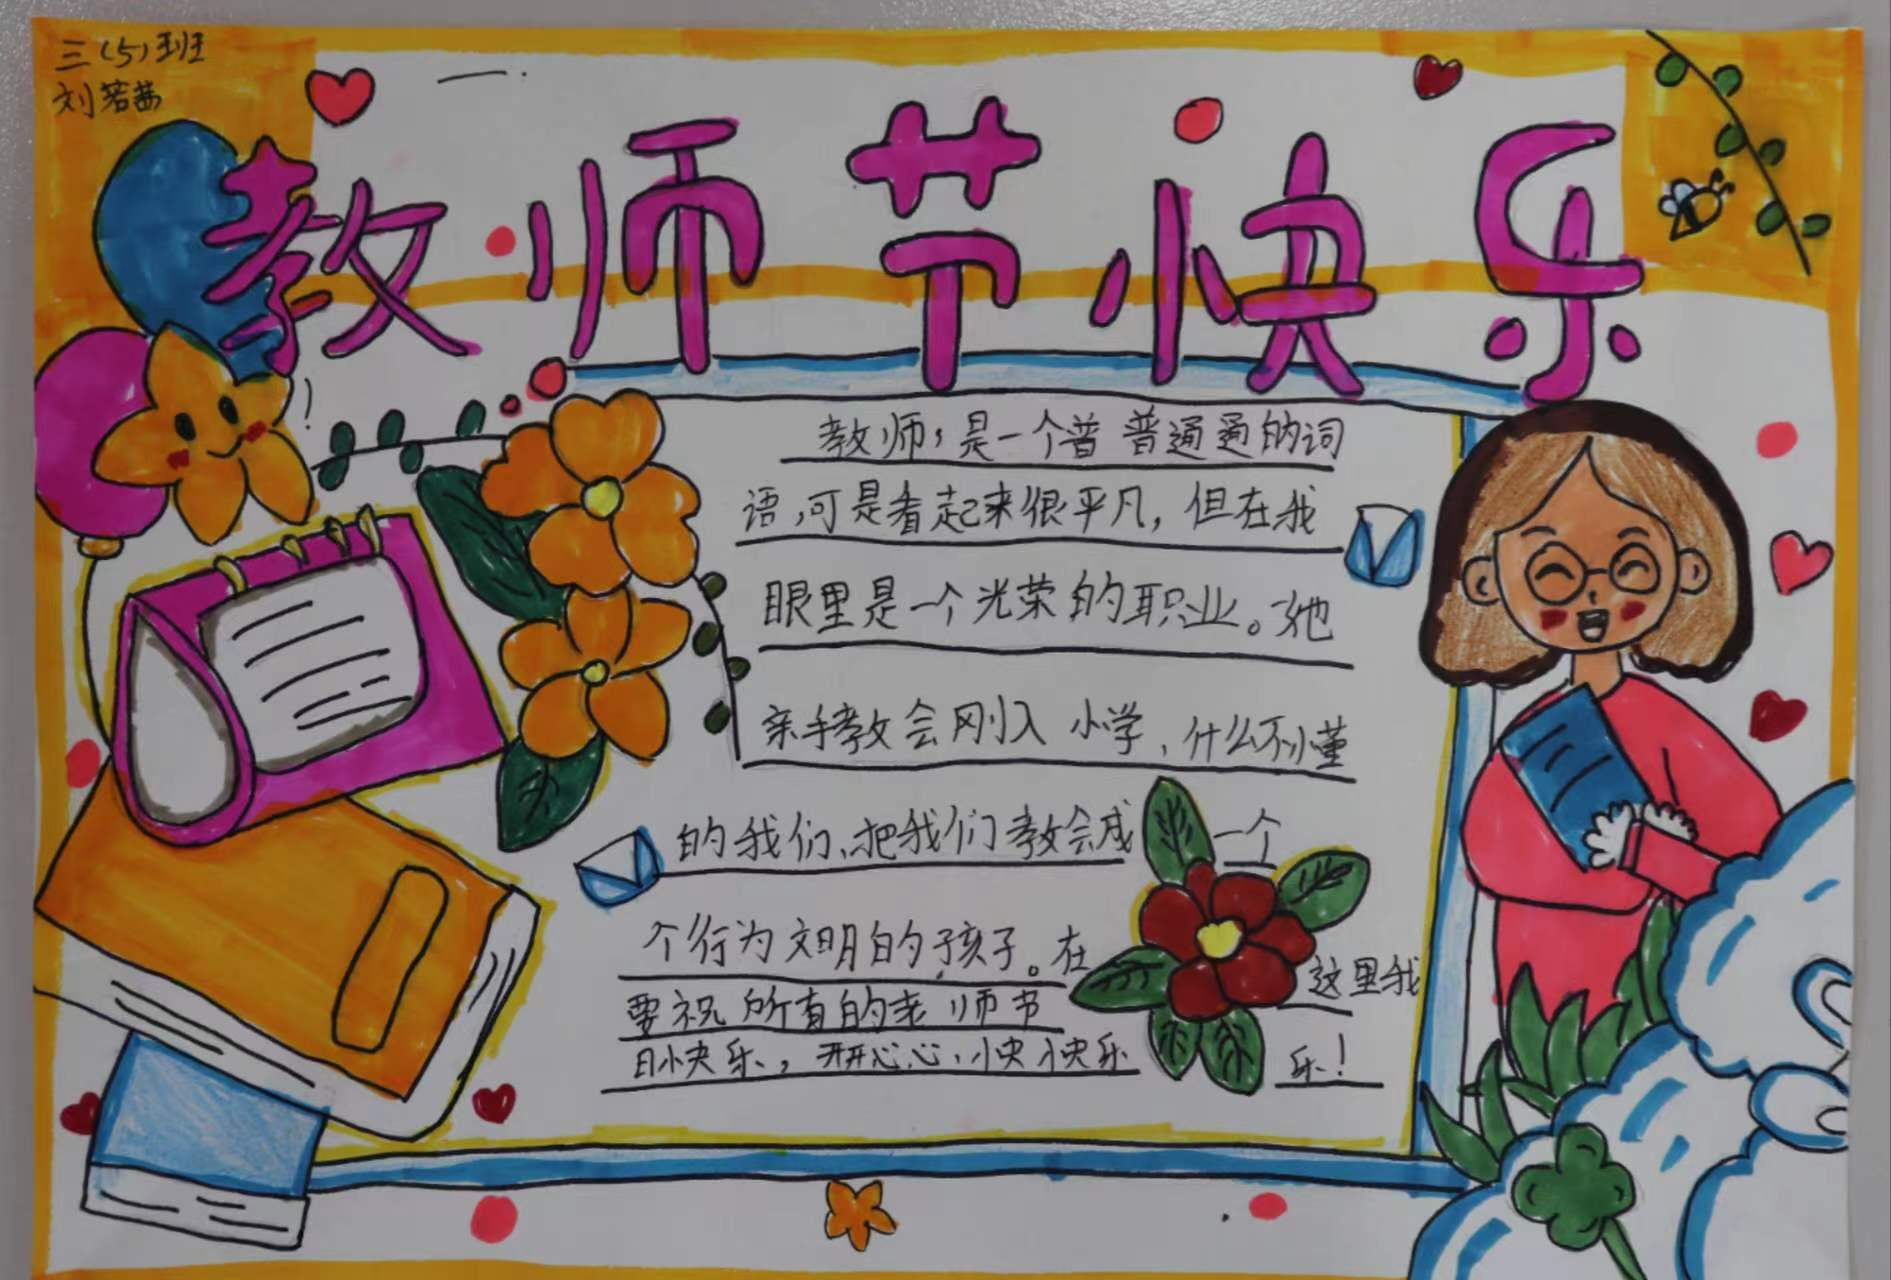 三(5)班
刘若茜
教师节快乐
教师,是一个普普通通的词
语,可是看起来很平凡,但在我
眼里是一个光荣的职业。她
亲手教会刚入小学,什么不懂
的我们、把我们教会成一个
个行为文明的孩子。在这里我
要祝所有的老师节
日快乐,开开心心、快快乐乐!